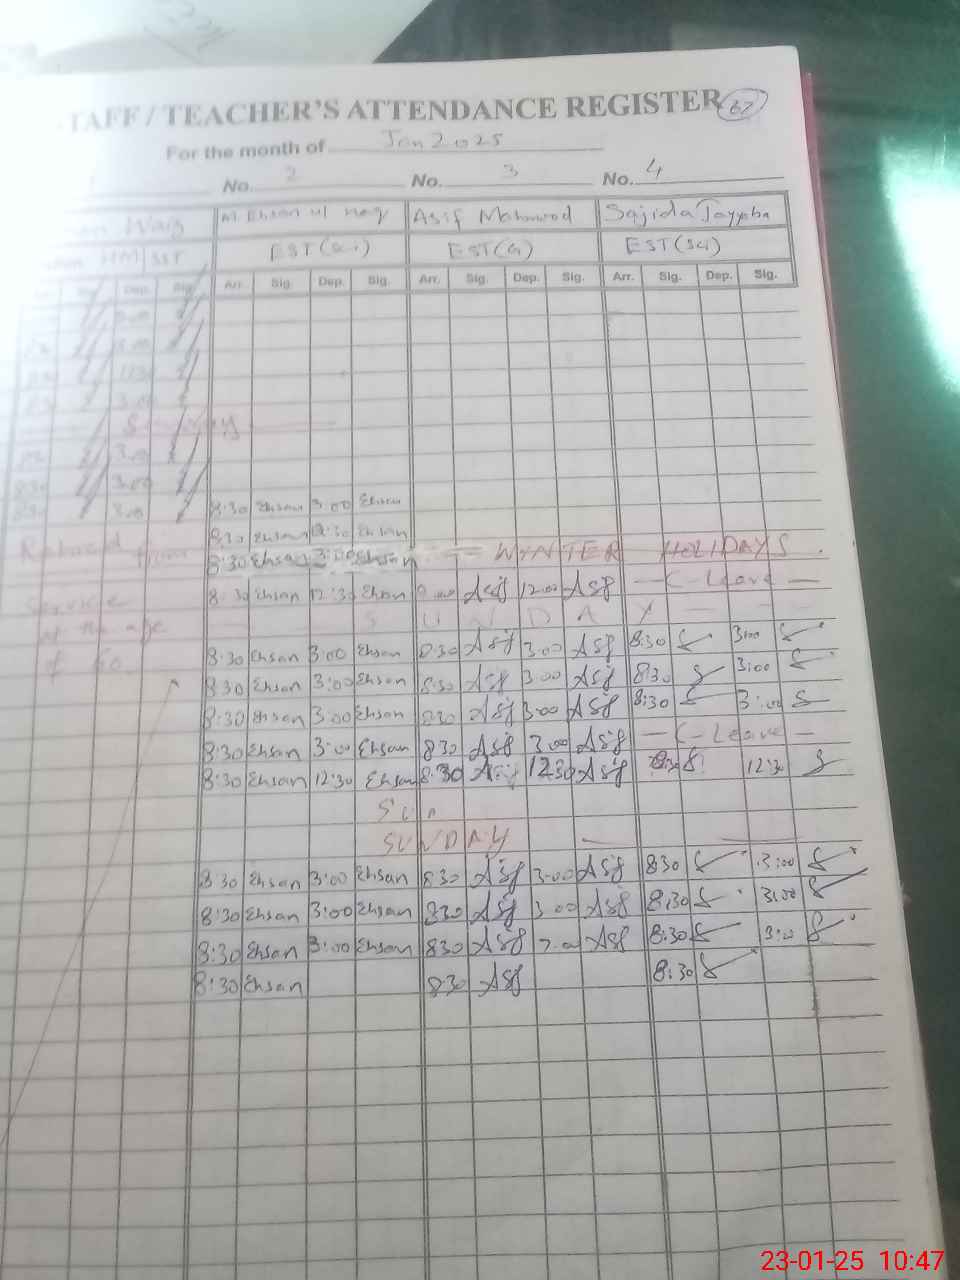 TAFF / TEACHER'S ATTENDANCE REGISTER 62
For the month of Jan 2025
No. 2 No. 3 No. 4
M. Ehsan ul Haq Asif Mahmood Sajida Tayyba
HM SST EST (Sci) EST (G) EST (Sci)
Dep. Sig. Arr. Sig. Dep. Sig. Arr. Sig. Dep. Sig. Arr. Sig. Dep. Sig.
3.00
3.00
3.00
830 3.00 8:30 Ehsan 3:00 Ehsan
830 3.00 8:30 Ehsan 12:30 Ehsan
Retired from 8:30 Ehsan 3:00 Ehsan WINTER HOLIDAYS
Service 8:30 Ehsan 12:30 Ehsan Asif 12.00 Asif — C-Leave —
at the age S U N D A Y
of 60 8:30 Ehsan 3:00 Ehsan 8:30 Asif 3:00 Asif 8:30 S 3:00 S
8:30 Ehsan 3:00 Ehsan 8:30 Asif 3.00 Asif 8:30 S 3:00 S
8:30 Ehsan 3:00 Ehsan 830 Asif 3:00 Asif 8:30 S 3:00 S
8:30 Ehsan 3:00 Ehsan 830 Asif 3.00 Asif — C-Leave —
8:30 Ehsan 12:30 Ehsan 8:30 Asif 1230 Asif 8:30 S 12:30 S
Sun
SUNDAY
8:30 Ehsan 3:00 Ehsan 830 Asif 3:00 Asif 830 S 3:00 S
8:30 Ehsan 3:00 Ehsan 830 Asif 3 00 Asif 8:30 S 3:00 S
8:30 Ehsan 3:00 Ehsan 830 Asif Asif 8:30 S 3:00 S
8:30 Ehsan 830 Asif 8:30 S
23-01-25 10:47